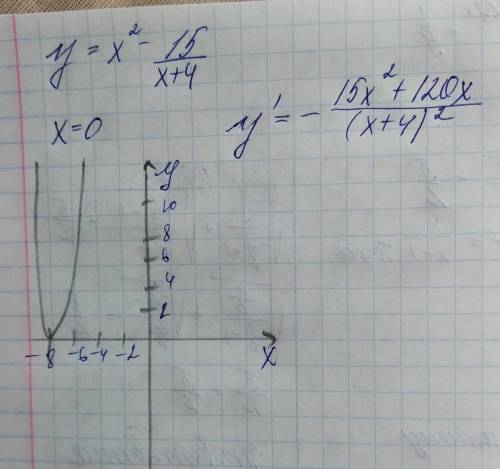 y = x² - 15/(x+4)
x=0
y' = - (15x² + 120x)/(x+4)²
y
10
8
6
4
2
-8 -6 -4 -2
x